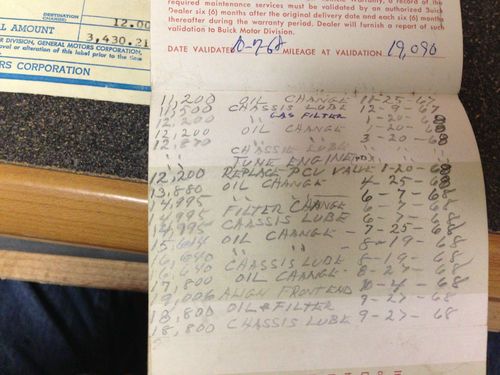 DESTINATION
CHARGES
12.00
AL AMOUNT
3,430.21
R DIVISION, GENERAL MOTORS CORPORATION,
oval or alteration of this label prior to the time
RS CORPORATION
required maintenance services must be validated by an authorized Buick
Dealer six (6) months after the original delivery date and each six (6) months
thereafter during the warranty period. Dealer will furnish a report of such
validation to Buick Motor Division.
DATE VALIDATED 10-7-68 MILEAGE AT VALIDATION 19,090
11,200 OIL CHANGE 11-25-67
11,500 CHASSIS LUBE 12-9-67
12,200 " GAS FILTER 1-20-68
12,200 OIL CHANGE 1-20-68
12,870 " " 3-20-68
" CHASSIS LUBE "
" TUNE ENGINE "
12,200 REPLACE PCV VALVE 1-20-68
13,880 OIL CHANGE 4-25-68
14,995 " " 6-7-68
14,995 FILTER CHANGE 6-7-68
14,995 CHASSIS LUBE 6-7-68
15,614 OIL CHANGE - 7-25-68
16,640 " " - 8-19-68
16,640 CHASSIS LUBE 8-19-68
17,800 OIL CHANGE - 8-27-68
19,006 ALIGN FRONT END 10-4-68
18,800 OIL & FILTER 9-27-68
18,800 CHASSIS LUBE 9-27-68